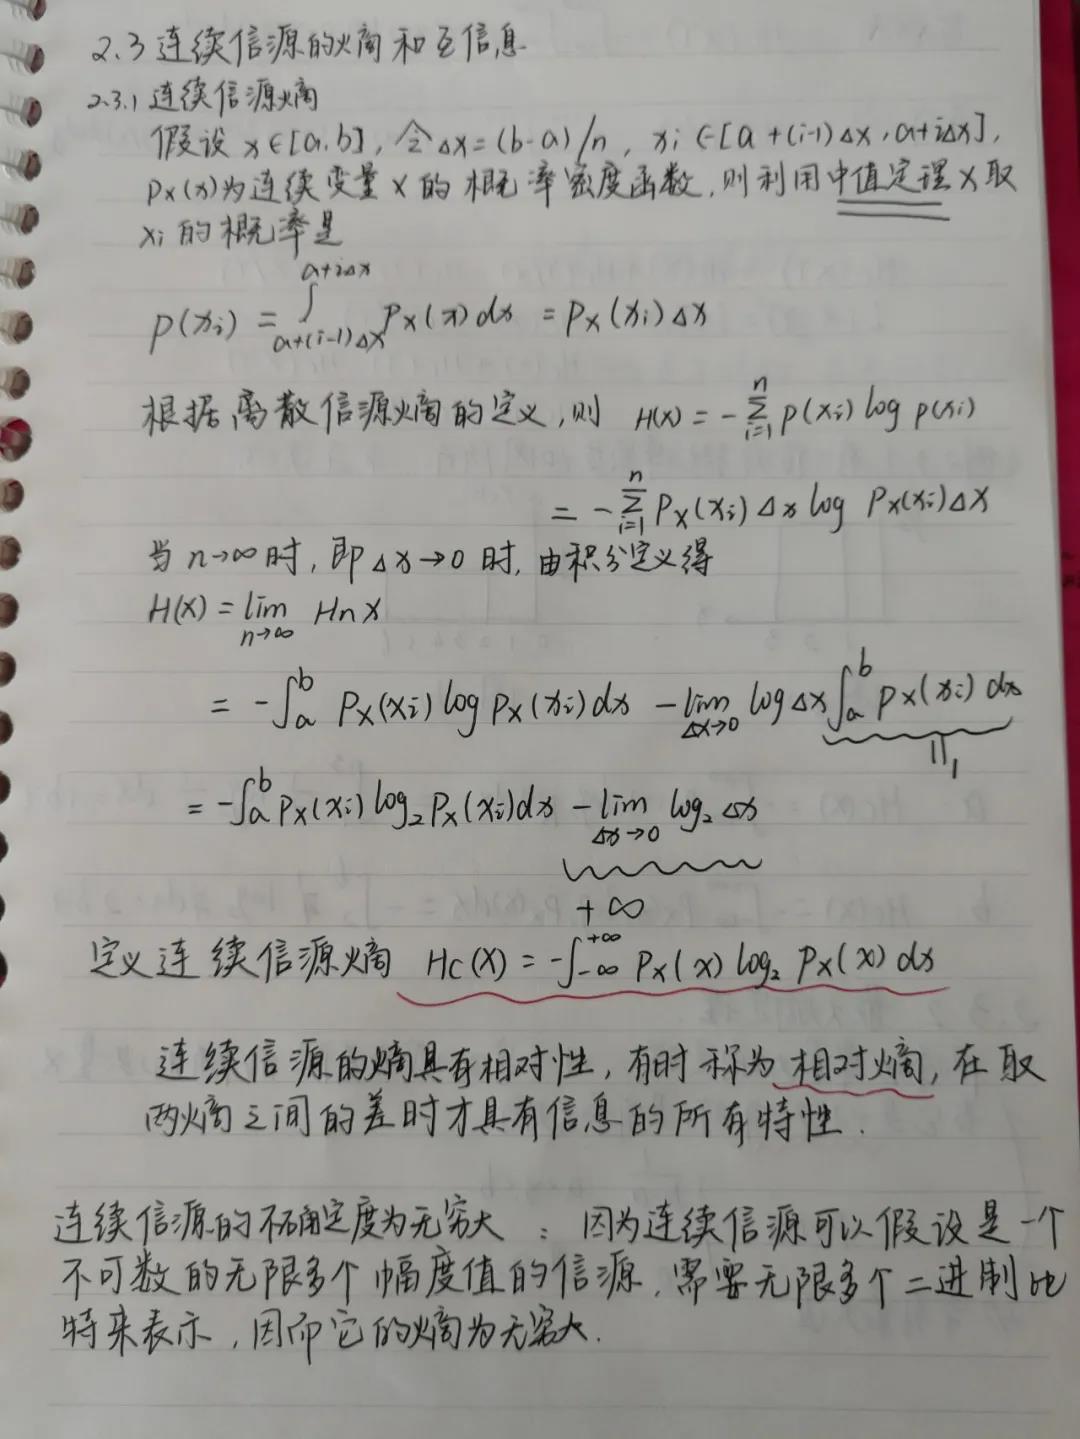 2.3 连续信源的熵和互信息
2.3.1 连续信源熵
假设 x∈[a,b], 令Δx=(b-a)/n, xi∈[a+(i-1)Δx, a+iΔx],
Px(x)为连续变量X的概率密度函数,则利用中值定理X取
xi的概率是
P(xi) = ∫_{a+(i-1)Δx}^{a+iΔx} Px(x)dx = Px(xi)Δx
根据离散信源熵的定义,则 H(X) = -∑_{i=1}^{n} P(xi) log p(xi)
= -∑_{i=1}^{n} Px(xi)Δx log Px(xi)Δx
当n→∞时,即Δx→0时,由积分定义得
H(X) = lim_{n→∞} HnX
= -∫_a^b Px(xi) log Px(xi)dx - lim_{Δx→0} log Δx ∫_a^b Px(xi)dx
= -∫_a^b Px(xi) log₂ Px(xi)dx - lim_{Δx→0} log₂ Δx
+∞
定义连续信源熵 Hc(X) = -∫_{-∞}^{+∞} Px(x) log₂ Px(x)dx
连续信源的熵具有相对性,有时称为相对熵,在取
两熵之间的差时才具有信息的所有特性.
连续信源的不确定度为无穷大:因为连续信源可以假设是一个
不可数的无限多个幅度值的信源,需要无限多个二进制比
特来表示,因而它的熵为无穷大.